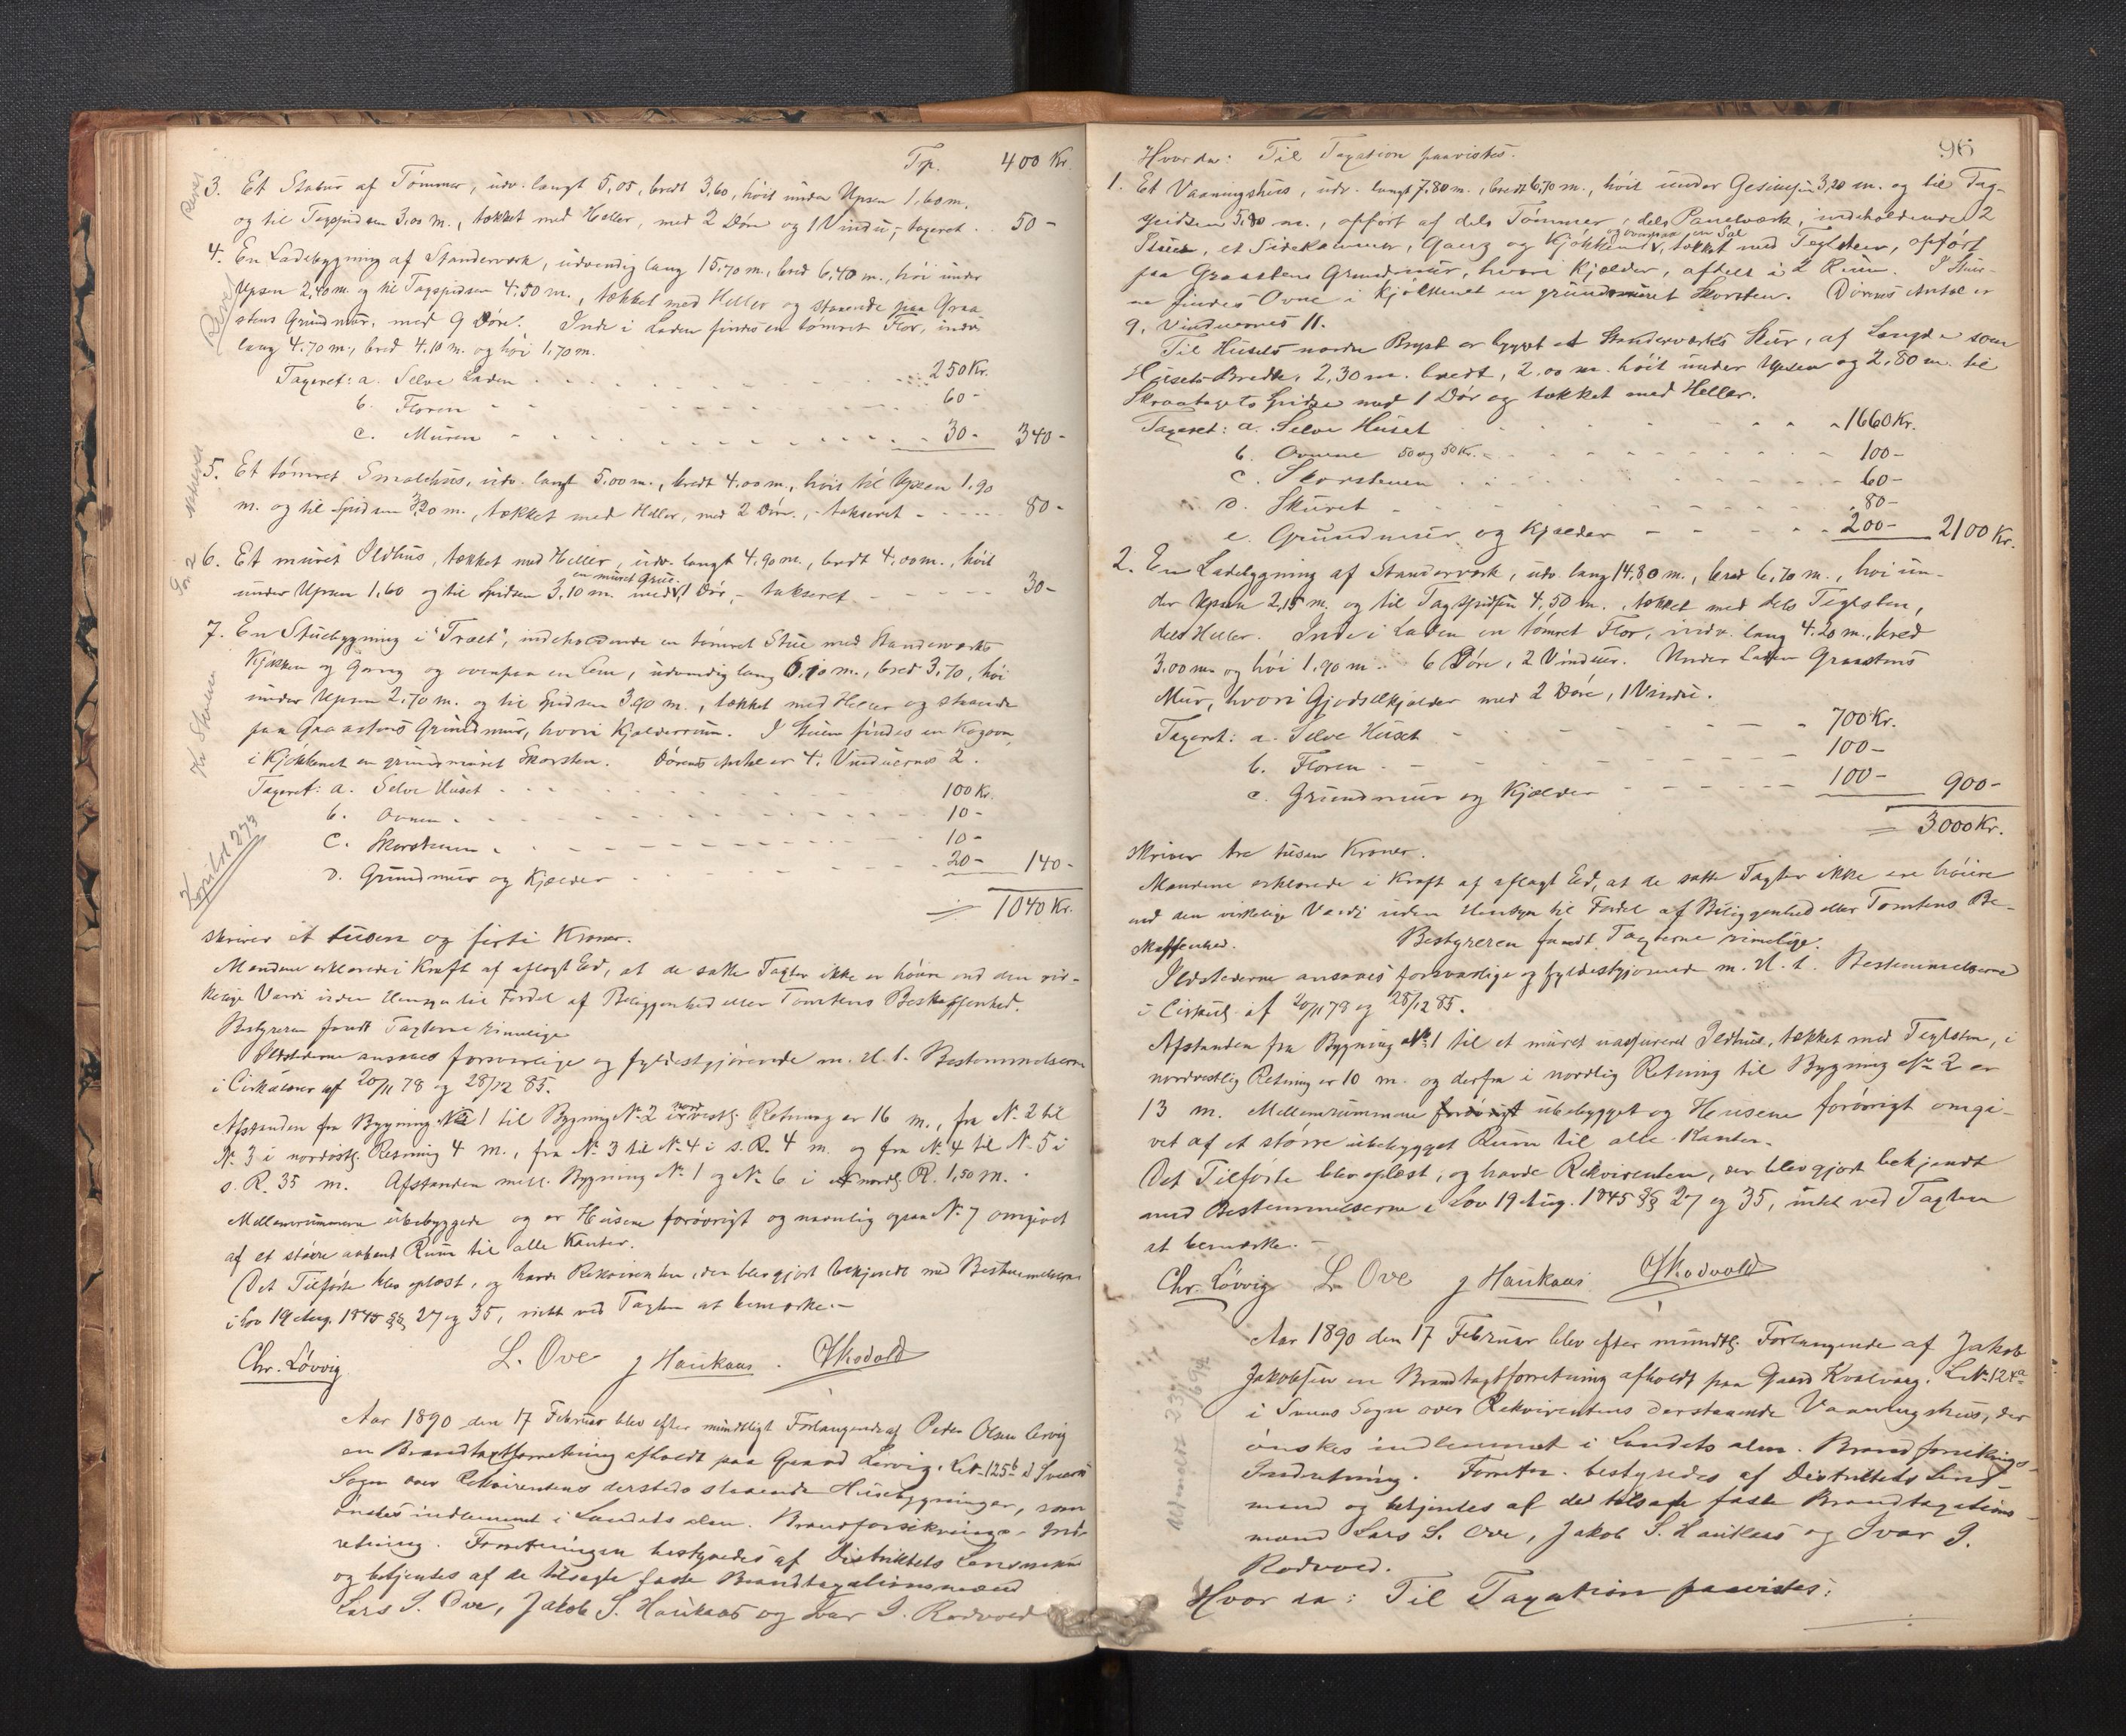 Trp. 400 Kr.
3. Et Stabur af Tømmer, udv. langt 5,05, bredt 3,60, høit under Upsen 1,60 m.
og til Tagspidsen 3,00 m., tækket med Heller, med 2 Døre og 1 Vindu, - taxeret . . 50 -
4. En Ladebygning af Standerværk, udvendig lang 15,70 m., bred 6,40 m., høi under
Upsen 2,40 m. og til Tagspidsen 4,50 m., tækket med Heller og staaende paa Graa-
stens Grundmur, med 9 Døre. Inde i Laden findes en tømret Flor, indv.
lang 4,70 m., bred 4,10 m. og høi 1,70 m.
Taxeret: a. Selve Laden 250 Kr.
b. Floren 60 -
c. Muren 30 - 340 -
5. Et tømret Smalehus, udv. langt 5,00 m., bredt 4,00 m., høit til Upsen 1,90
m. og til Spidsen 3,20 m., tækket med Heller, med 2 Døre, - takseret - 80 -
6. Et muret Ildhus, tækket med Heller, udv. langt 4,90 m., bredt 4,00 m., høit
en muret Grue.
under Upsen 1,60 og til Spidsen 3,10 m. med 1 Dør, - takseret - 30 -
7. En Stuebygning i "Træet", indeholdende en tømret Stue med Standerværks
Kjøkken og Gang og ovenpaa en Lem, udvendig lang 6,10 m., bred 3,70, høi
under Upsen 2,70 m. og til Spidsen 3,90 m., tækket med Heller og staaende
paa Graastens Grundmur, hvori Kjælderrum. I Stuen findes en Kogovn,
i Kjøkkenet en grundmuret Skorsten. Dørenes Antal er 4. Vinduernes 2.
Taxeret: a. Selve Huset 100 Kr.
b. Ovnen 10 -
c. Skorstenen 10 -
d. Grundmur og Kjælder 20 - 140 -
1040 Kr.
skriver et tusen og firti Kroner.
Mændene erklærede i Kraft af aflagt Ed, at de satte Taxter ikke er høiere end den vir-
kelige Værdi uden Hensyn til Fordel af Beliggenhed eller Tomtens Beskaffenhed.
Bestyreren fandt Taxterne rimelige.
Ildstederne ansaaes forsvarlige og fyldestgjørende m. H. t. Bestemmelserne
i Cirkulærer af 20/11 78 og 28/12 85.
Afstanden fra Bygning No 1 til Bygning No 2 i nordvestl. Retning er 16 m., fra No 2 til
No 3 i nordøstl. Retning 4 m., fra No 3 til No 4 i s. R. 4 m. og fra No 4 til No 5 i
s. R. 35 m. Afstanden mell. Bygning No 1 og No 6 i nordl. R. 1,50 m.
Mellemrummene ubebyggede og er Husene forøvrigt og navnlig ogsaa No 7 omgivet
af et større aabent Rum til alle Kanter.
Det Tilførte blev oplæst, og havde Rekvirenten, der blev gjort bekjendt med Bestemmelserne
i Lov 19 Aug. 1845 §§ 27 og 35, intet ved Taxten at bemærke. -
Chr. Løvvig L. Ove J Haukaas OSkodvold
Aar 1890 den 17 Februar blev efter mundtligt Forlangende af Peder Olsen Lervig
en Brandtaxtforretning afholdt paa Gaard Lervig, L.No 125b i Sveens
Sogn over Rekvirentens dersteds staaende Husebygninger, som
ønskes indlemmet i Landets alm. Brandforsikrings-Ind-
retning. Forretningen bestyredes af Distriktets Lensmand
og betjentes af de tilsagte faste Brandtaxationsmænd
Lars S. Ove, Jakob S. Haukaas og Ivar I. Rodvold
Reise
Reise
Nohuse
No 2
Kr Stuene
Kopibl 273
96
Hvor da: Til Taxation paavistes:
1. Et Vaaningshus, udv. langt 7,80 m., bredt 6,70 m., høit under Gesimsen 3,20 m. og til Tag-
spidsen 5,90 m., opført af dels Tømmer, dels Panelværk, indeholdende 2
og ovenpaa en Sal
Stuer, et Sidekammer, Gang og Kjøkken, tækket med Teglsten, opført
paa Graastens Grundmur, hvori Kjælder, aftelt i 2 Rum. I Stuer-
ne findes Ovne i Kjøkkenet en grundmuret Skorsten. Dørenes Antal er
9, Vinduernes 11.
Til Husets nordre Bryst er bygget et Standerværks Skur, af Længde som
Husets Bredde, 2,30 m. bredt, 2,00 m. høit under Upsen og 2,80 m. til
Skraatagets Spidse med 1 Dør og tækket med Heller.
Taxeret: a. Selve Huset 1660 Kr.
b. Ovnene 50 og 50 Kr. 100 -
c. Skorstenen 60 -
d. Skuret 80 -
e. Grundmur og Kjælder 200 - 2100 Kr.
2. En Ladebygning af Standerværk, udv. lang 14,80 m., bred 6,70 m., høi un-
der Upsen 2,15 m. og til Tagspidsen 4,50 m., tækket med dels Teglsten,
dels Heller. Inde i Laden en tømret Flor, indv. lang 4,20 m., bred
3,00 m. og høi 1,90 m. 6 Døre, 2 Vinduer. Under Laden Graastens
Mur, hvori Gjødselkjælder med 2 Døre, 1 Vindu.
Taxeret: a. Selve Huset 700 Kr.
b. Floren 100 -
c. Grundmur og Kjælder 100 - 900 -
3000 Kr.
skriver tre tusen Kroner.
Mændene erklærede i Kraft af aflagt Ed, at de satte Taxter ikke ere høiere
end den virkelige Værdi uden Hensyn til Fordel af Beliggenhed eller Tomtens Be-
skaffenhed. Bestyreren fandt Taxterne rimelige.
Ildstederne ansaaes forsvarlige og fyldestgjørende m. H. t. Bestemmelserne
i Cirkul. af 20/11 78 og 28/12 85.
Afstanden fra Bygning No 1 til et muret uassureret Ildhus, tækket med Teglsten, i
nordvestlig Retning er 10 m. og derfra i nordlig Retning til Bygning No 2 er
13 m. Mellemrummene forøvrigt ubebygget og Husene forøvrigt omgi-
vet af et større ubebygget Rum til alle Kanter.
Det Tilførte blev oplæst, og havde Rekvirenten, der blev gjort bekjendt
med Bestemmelserne i Lov 19 Aug. 1845 §§ 27 og 35, intet ved Taxten
at bemærke. -
Chr. Løvvig L. Ove J Haukaas OSkodvold
Aar 1890 den 17 Februar blev efter mundtl. Forlangende af Jakob
Jakobsen en Brandtaxtforretning afholdt paa Gaard Kvalvaag, L.No 124a
i Sveens Sogn over Rekvirentens derstaaende Vaaningshus, der
ønskes indlemmet i Landets alm. Brandforsikrings-
Indretning. Forretn. bestyredes af Distriktets Lens-
mand og betjentes af de tilsagte faste Brandtaxations-
mænd Lars S. Ove, Jakob S. Haukaas og Ivar I.
Rodvold.
Hvor da: Til Taxation paavistes:
Udmeldt 23/1 94